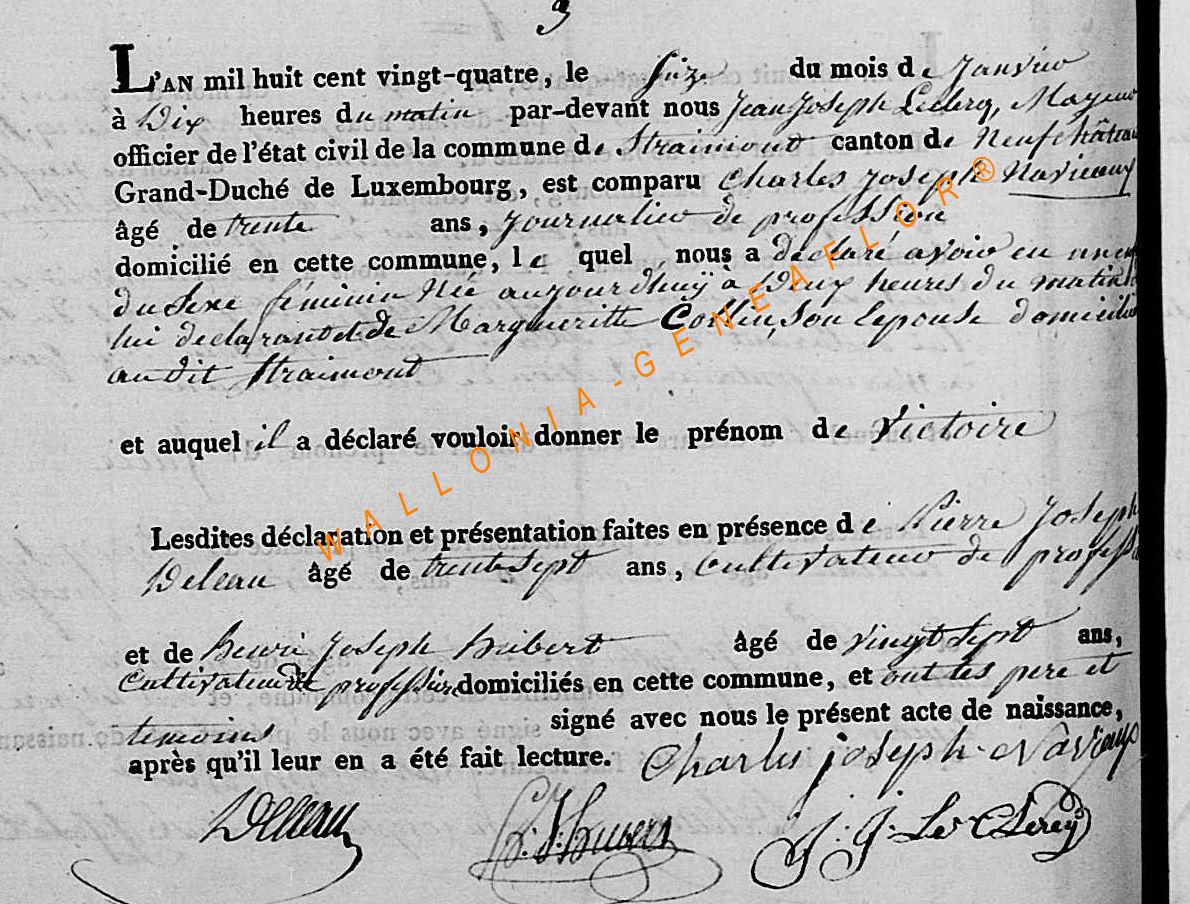 3
L'AN mil huit cent vingt-quatre, le seize du mois de Janvier
à Dix heures du matin par-devant nous Jean Joseph Leclercq, Mayeur
officier de l'état civil de la commune de Straimont canton de Neufchâteau
Grand-Duché de Luxembourg, est comparu Charles Joseph Naviaux
âgé de trente ans, journalier de profession
domicilié en cette commune, le quel nous a déclaré avoir eu un
du sexe féminin Née aujourdhuÿ à Deux heures du matin
lui declarant et de Margueritte son Epouse domiciliée
audit Straimont
et auquel il a déclaré vouloir donner le prénom de Victoire
Lesdites déclaration et présentation faites en présence de Pierre Joseph
Deleau âgé de trente sept ans, cultivateur de profess
et de Henri Joseph Hubert âgé de vingt sept ans,
cultivateur de profession domiciliés en cette commune, et ont les pere et
temoins signé avec nous le présent acte de naissance,
après qu'il leur en a été fait lecture. Charles joseph Naviaux
Deleau H. J. J. J. Le Clercq
WALLONIA-GENEAFLOR®